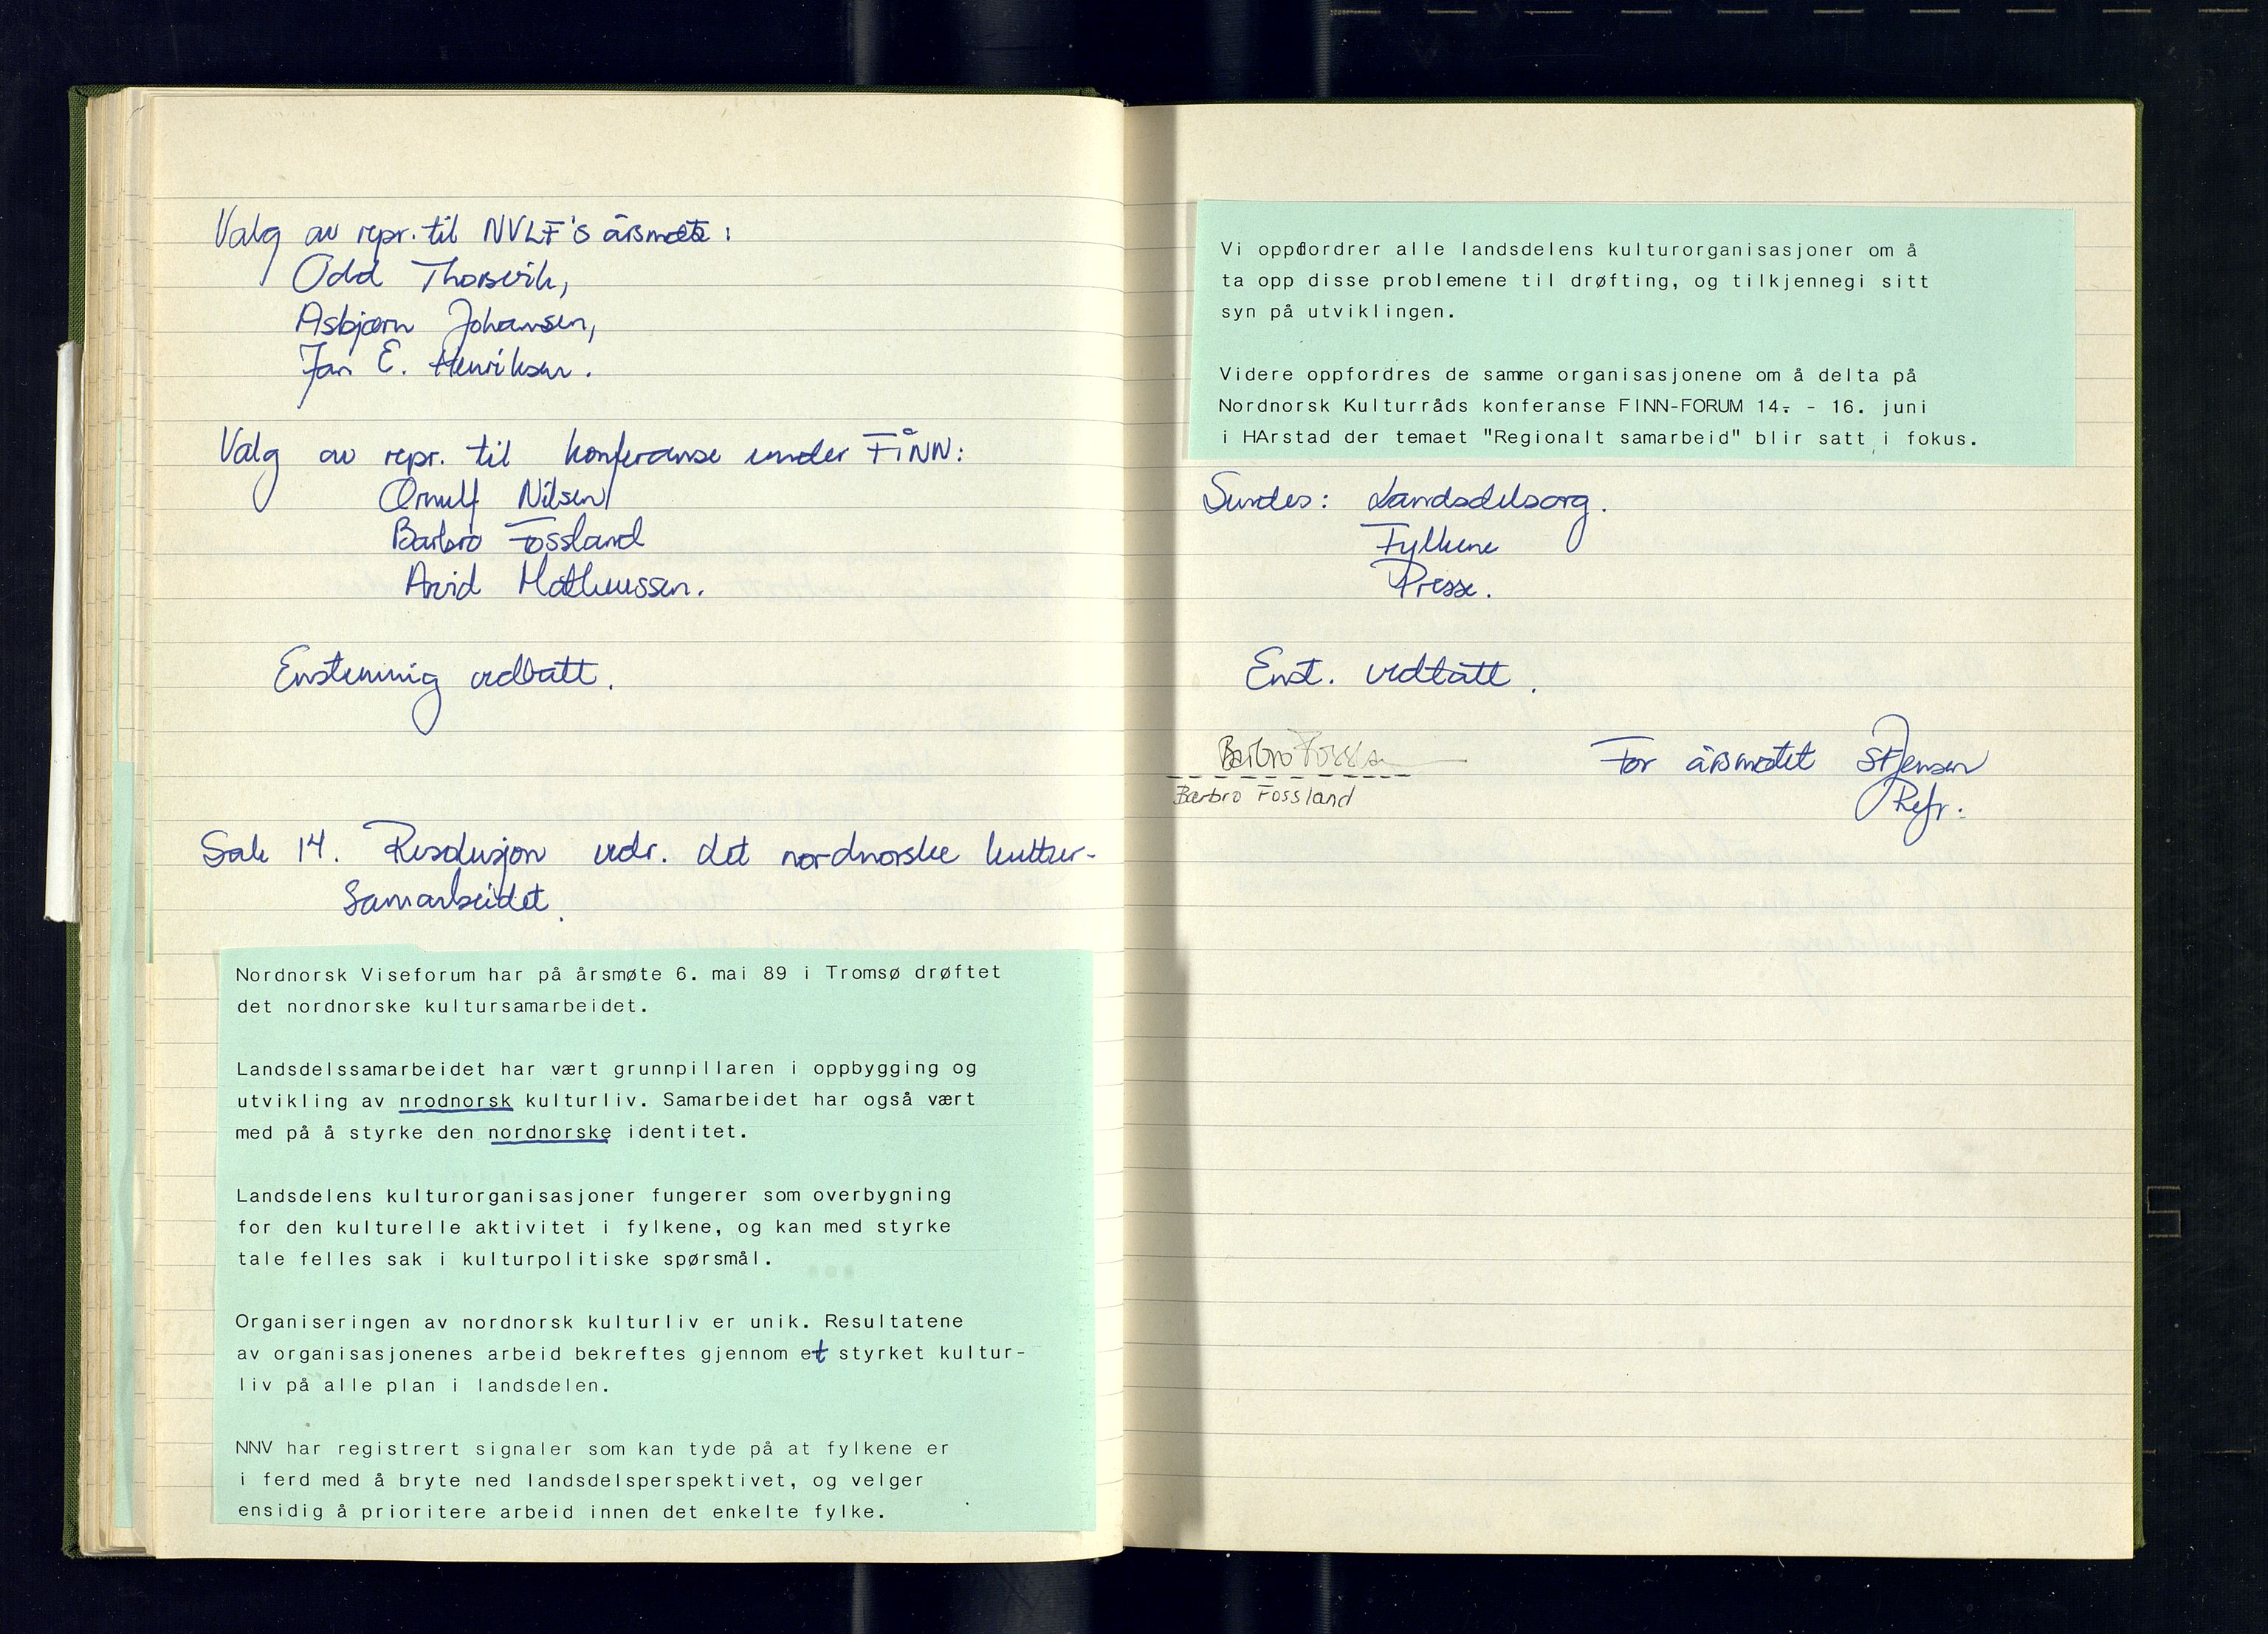 Valg av repr. til NVLF's årsmøte:
Odd Thorsvik,
Asbjørn Johansen,
Jan E. Henriksen.
Valg av repr. til konferanse under FINN:
Ørnulf Nilsen
Barbro Fossland
Arvid Mathiussen.
Enstemmig vedtatt.
Sak 14. Resolusjon vedr. det nordnorske kultur-
samarbeidet.
Nordnorsk Viseforum har på årsmøte 6. mai 89 i Tromsø drøftet
det nordnorske kultursamarbeidet.
Landsdelssamarbeidet har vært grunnpillaren i oppbygging og
utvikling av nrodnorsk kulturliv. Samarbeidet har også vært
med på å styrke den nordnorske identitet.
Landsdelens kulturorganisasjoner fungerer som overbygning
for den kulturelle aktivitet i fylkene, og kan med styrke
tale felles sak i kulturpolitiske spørsmål.
Organiseringen av nordnorsk kulturliv er unik. Resultatene
av organisasjonenes arbeid bekreftes gjennom et styrket kultur-
liv på alle plan i landsdelen.
NNV har registrert signaler som kan tyde på at fylkene er
i ferd med å bryte ned landsdelsperspektivet, og velger
ensidig å prioritere arbeid innen det enkelte fylke.
Vi oppfordrer alle landsdelens kulturorganisasjoner om å
ta opp disse problemene til drøfting, og tilkjennegi sitt
syn på utviklingen.
Videre oppfordres de samme organisasjonene om å delta på
Nordnorsk Kulturråds konferanse FINN-FORUM 14. - 16. juni
i HArstad der temaet "Regionalt samarbeid" blir satt i fokus.
Sendes: Landsdelsorg.
Fylkene
Presse.
Enst. vedtatt.
Barbro Fossla
Barbro Fossland
For årsmøtet SFJensen
Refr.